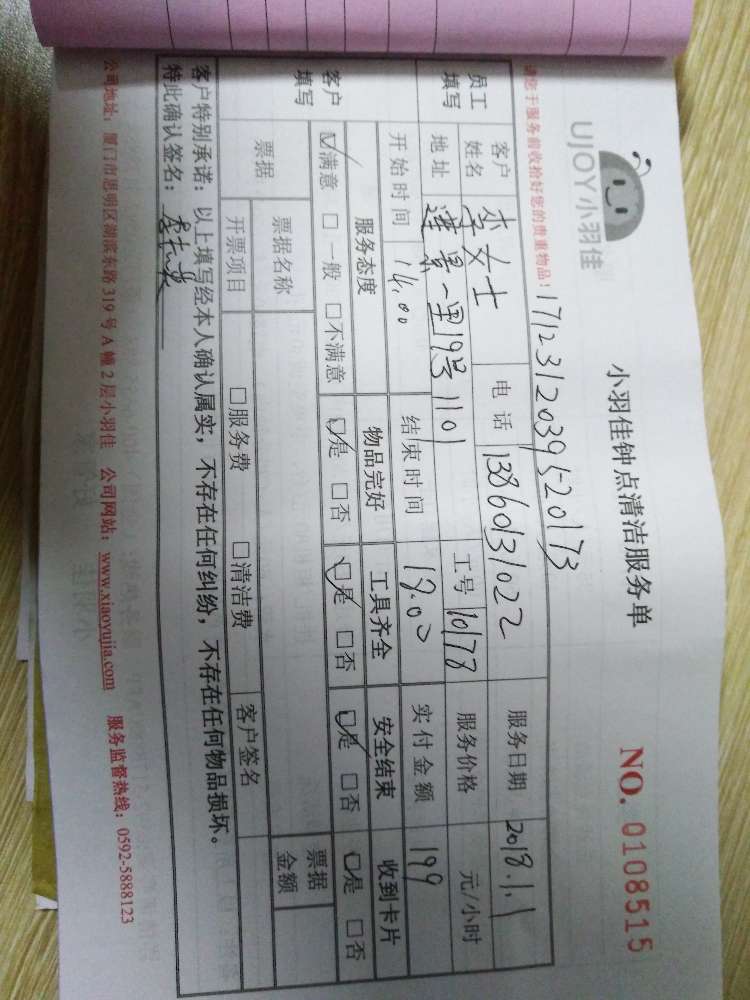 UJOY小羽佳
小羽佳钟点清洁服务单
NO. 0108515
请您于服务前收捡好您的贵重物品！
1712312039520173
员工填写 客户姓名 李女士 电话 13860131022 服务日期 2018.1.1
地址 莲景一里19号1101 工号 10178 服务价格 元/小时
开始时间 14.00 结束时间 19.00 实付金额 199
客户填写 服务态度 物品完好 工具齐全 安全结束 收到卡片
☑满意 □一般 □不满意 ☑是 □否 ☑是 □否 ☑是 □否 ☑是 □否
票据 票据名称 票据金额
开票项目 □服务费 □清洁费 客户签名
客户特别承诺：以上填写经本人确认属实，不存在任何纠纷，不存在任何物品损坏。
特此确认签名：
公司地址：厦门市思明区湖滨东路319号A幢2层小羽佳 公司网站：www.xiaoyujia.com 服务监督热线：0592-5888123